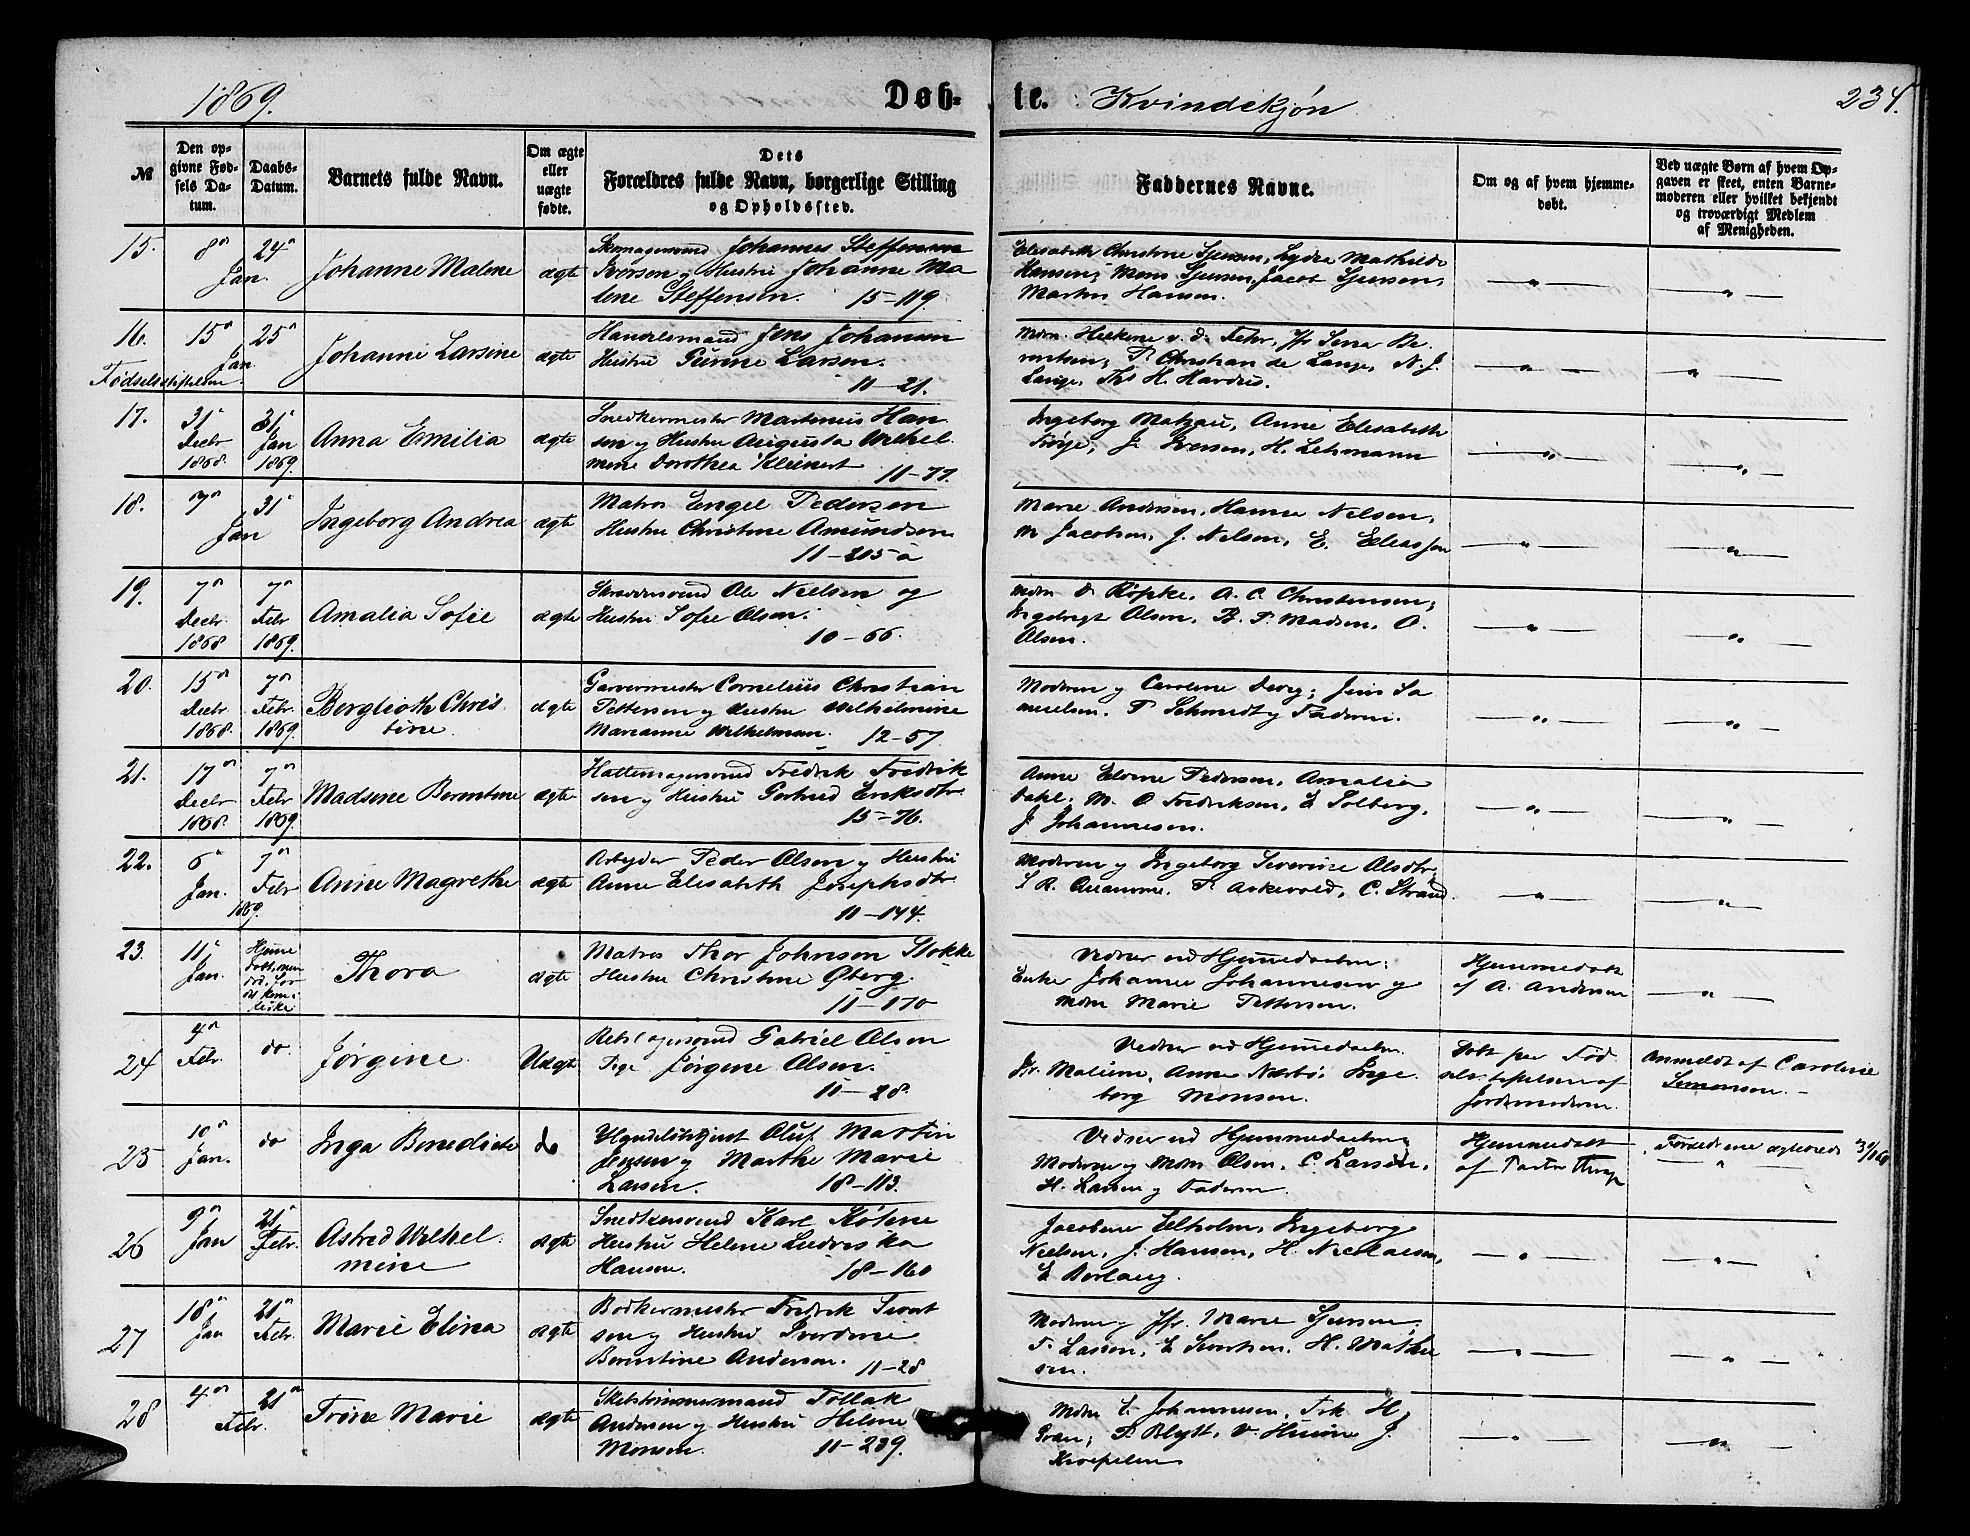 1869.
Døb-
te.
Kvindekjøn
234.
№
Den op-
givne Fød-
sels Da-
tum.
Daabs-
Datum.
Barnets fulde Navn.
Om ægte
eller
uægte
fødte.
Dets
Forældres fulde Navn, borgerlige Stilling
og Opholdssted.
Faddernes Navne.
Om og af hvem hjemme-
døbt.
Ved uægte Børn af hvem Op-
gaven er skeet, enten Barne-
moderen eller hvilket bekjendt
og troværdigt Medlem
af Menigheden.
15.
8
24
Jan.
Johanne Malene
ægte
Skomagersvend Johannes Steffensen
Iversen og Hustru Johanne Ma
lene Steffensen. 15-119.
Elisabeth Christine Sjursen, Lydia Mathilde
Hansen; Mons Sjursen, Jacob Sjursen,
Martin Hansen.
16.
15
25
Jan.
Fødselsstiftelsen.
Johanne Larsine
ægte
Handelsmand Jens Johansen
Hustru Gurine Larsen.
11-21.
P. Christian de Lange, N. J.
Lange, Ths H. Hardus.
17.
31
Decbr
1868.
31
Jan
1869.
Anna Emilia
ægte
Snedkermester Martinus Han
sen og Hustru Augusta Wilhel
mine Dorothea Kleinert
11-77.
Ingeborg Matzau, Anne Elisabeth
Frøje, J. Iversen, H. Lehmann
18.
7
31
Jan
Ingeborg Andrea
ægte
Matros Engel Pedersen
Hustru Christine Amundsen
11-215 a
Marie Andersen, Hanne Nilsen,
M Jacobsen, J. Nilsen, E. Eliassen
19.
7
Decbr
1868
7
Febr
1869.
Amalia Sofie
ægte
Skræddersvend Ole Nielsen og
Hustru Sofie Olsen.
10-66.
Mdm D. Røpke, A. C. Christensen;
Ingebregt Olsen, B. P. Madsen, O.
Olsen.
20.
15
Decbr
1868.
7
Febr
1869.
Berglioth Chris
tine.
ægte
Garvermester Cornelius Christian
Pettersen og Hustru Wilhelmine
Marianne Wilhelmsen. 12-57.
Moderen og Caroline Devig; Jens Sa
muelsen, P Schmidt og Faderen.
21.
17
Decbr
1868.
7
Febr
1869.
Madsine Berentine
ægte
Hattemagersvend Fredrik Fredrik
sen og Hustru Gertrud Eriksdtr.
15-76.
Anne Elvine Pedersen, Amalia
Dahl, M. O Fredriksen, E Solberg,
J. Johannesen.
22.
6
Jan.
7
Febr
1869.
Anne Magrethe
ægte
Arbeider Peder Olsen og Hustru
Anne Elisabeth Josephsdtr
11-144.
Moderen og Ingeborg Severine Olsdtr,
P. Askevold, C. Strand.
23.
11
Jan.
Hjemme
døbt, men
død, før
det kom i
Kirke
Thora
ægte
Matros Thor Johnson Stokke
Hustru Christine Øberg.
11-170
Vidner ved Hjemmedaaben;
Enke Johanne Johannesen og
Mdm Marie Pettersen.
Hjemmedøbt
af A. Andersen
24
4
Febr.
do.
Jørgine.
Uægte
Rebslagersvend Gabriel Olsen
Pige Jørgine Olsen.
11-28.
Vidner ved Hjemmedaaben.
Jfr. Malum, Anne Nærbø, Inge
borg Monsen.
Døbt paa Fød
selsstiftelsen af
Jordemoderen.
Anmeldt af Caroline
Simonsen.
25
10
Jan.
do
Inga Benedicte
do
Handelsbetjent Oluf Martin
Jensen og Marthe Marie
Larsen. 18-113.
Vidner ved Hjemmedaaben;
Moderen og Mdm Olsen, C. Larsen,
H. Larsen og Faderen.
Hjemmedøbt
af Pastor
Forældrene ægteviede
26
9
Jan
21
Febr.
Astred Wilhel
mine
ægte
Snedkersvend Karl Køhne
Hustru Helene Ludvika
Hansen. 18-160
Jacobine Elholm, Ingeborg
Nielsen, J. Hansen, H. Nicolaisen,
E Borlaug.
27
18
Jan
21
Febr.
Marie Elina
ægte
Bødkermester Fredrik Sivert
sen og Hustru Sverdine
Berentine Andersen. 11-28
Moderen og Jfr. Marie Sjursen,
T. Lassen, E Sivertsen, H. Mathi
sen.
28
4
21
Febr.
Trine Marie
ægte
Skibstømmermand Tollak
Andersen og Hustru Helene
Monsen. 11-239.
Mdm E. Johannesen, Frk H
Gran; P Blytt, V. Huun, J.
Krepelien